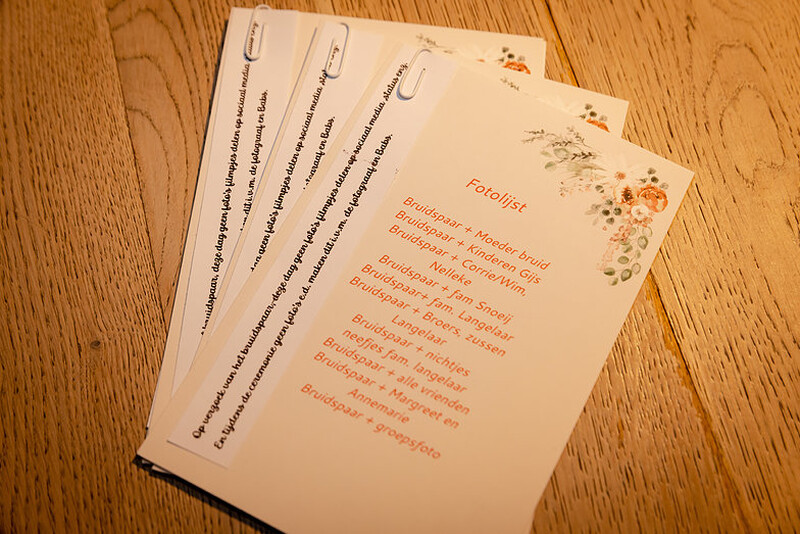 Fotolijst
Bruidspaar + Moeder bruid
Bruidspaar + Kinderen Gijs
Bruidspaar + Corrie/Wim,
Nelleke
Bruidspaar + fam. Snoeij
Bruidspaar+ fam. Langelaar
Bruidspaar + Broers, zussen
Langelaar
Bruidspaar + nichtjes
neefjes fam. langelaar
Bruidspaar + alle vrienden
Bruidspaar + Margreet en
Annemarie
Bruidspaar + groepsfoto
Op verzoek van het bruidspaar, deze dag geen foto's filmpjes delen op sociaal media, status enz.
En tijdens de ceremonie geen foto's e.d. maken dit i.v.m. de fotograaf en Babs.
dag geen foto's filmpjes delen op sociaal media,
fotograaf en Babs.
bruidspaar, deze dag geen foto's filmpjes delen op sociaal media
de fotograaf en Babs.